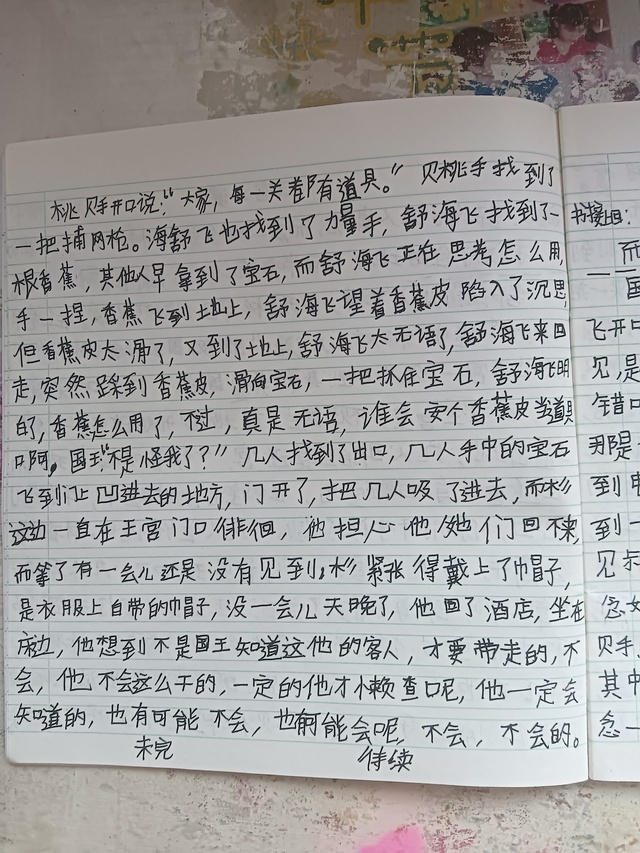 桃贝手开口说:“大家,每一关都有道具。”贝桃手找到了
一把捕网枪。海舒飞也找到了力量手,舒海飞找到了一
根香蕉,其他人早拿到了宝石,而舒海飞正在思考怎么用,
手一捏,香蕉飞到土地上,舒海飞望着香蕉皮陷入了沉思,
但香蕉皮太滑了,又到了土地上,舒海飞太无语了,舒海飞来回
走,突然踩到香蕉皮,滑向宝石,一把抓住宝石,舒海飞明
白,香蕉怎么用了,不过,真是无语,谁会要个香蕉皮当道具
啊。国王“不是怪我了?”几人找到了出口,几人手中的宝石
飞到门上凹进去的地方,门开了,把几人吸了进去,而杉
这边一直在王宫门口徘徊,他担心他/她们回不来,
而等了有一会儿还是没有见到。杉紧张得戴上了巾帽子,
是衣服上自带的巾帽子,没一会儿天晚了,他回了酒店,坐在
床边,他想到不是国王知道这他的客人,才要带走的,不
会,他不会这么干的,一定的他才懒查呢,他一定会
知道的,也有可能不会,也有可能会呢,不会,不会的。
未完 待续
书接上回:
一而
国
飞开口
见,是
错口
那是
到
到一
见
念
贝手
其中
念一